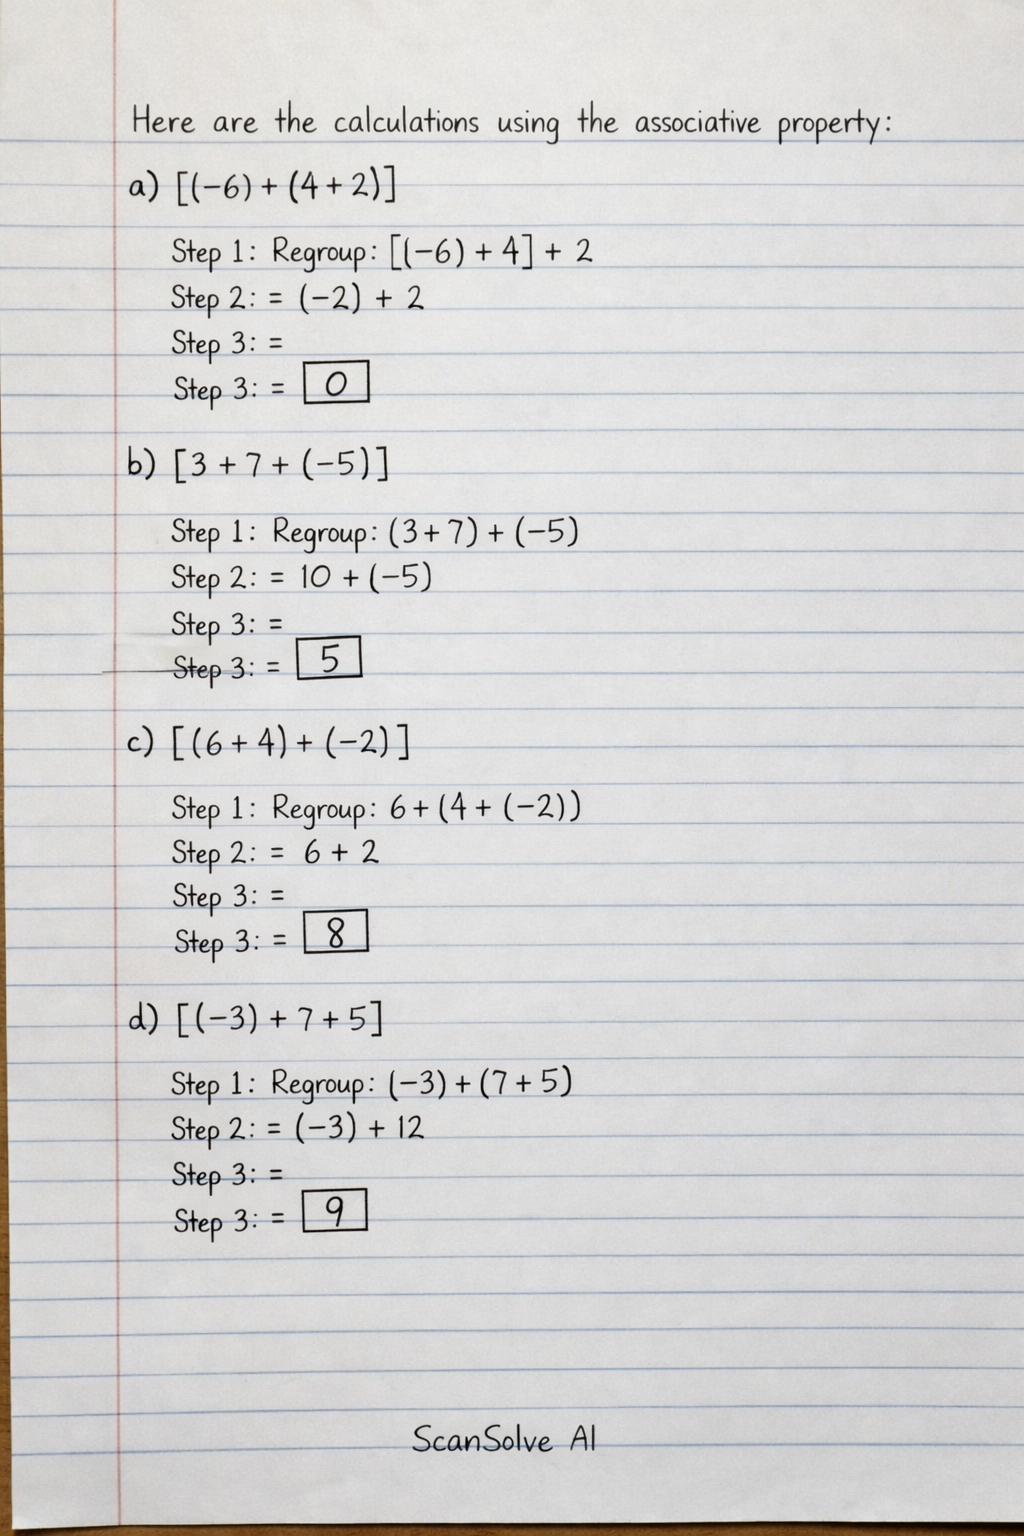 Here are the calculations using the associative property:
a) [(-6) + (4 + 2)]
Step 1: Regroup: [(-6) + 4] + 2
Step 2: = (-2) + 2
Step 3: =
Step 3: = 0
b) [3 + 7 + (-5)]
Step 1: Regroup: (3 + 7) + (-5)
Step 2: = 10 + (-5)
Step 3: =
Step 3: = 5
c) [(6 + 4) + (-2)]
Step 1: Regroup: 6 + (4 + (-2))
Step 2: = 6 + 2
Step 3: =
Step 3: = 8
d) [(-3) + 7 + 5]
Step 1: Regroup: (-3) + (7 + 5)
Step 2: = (-3) + 12
Step 3: =
Step 3: = 9
ScanSolve AI